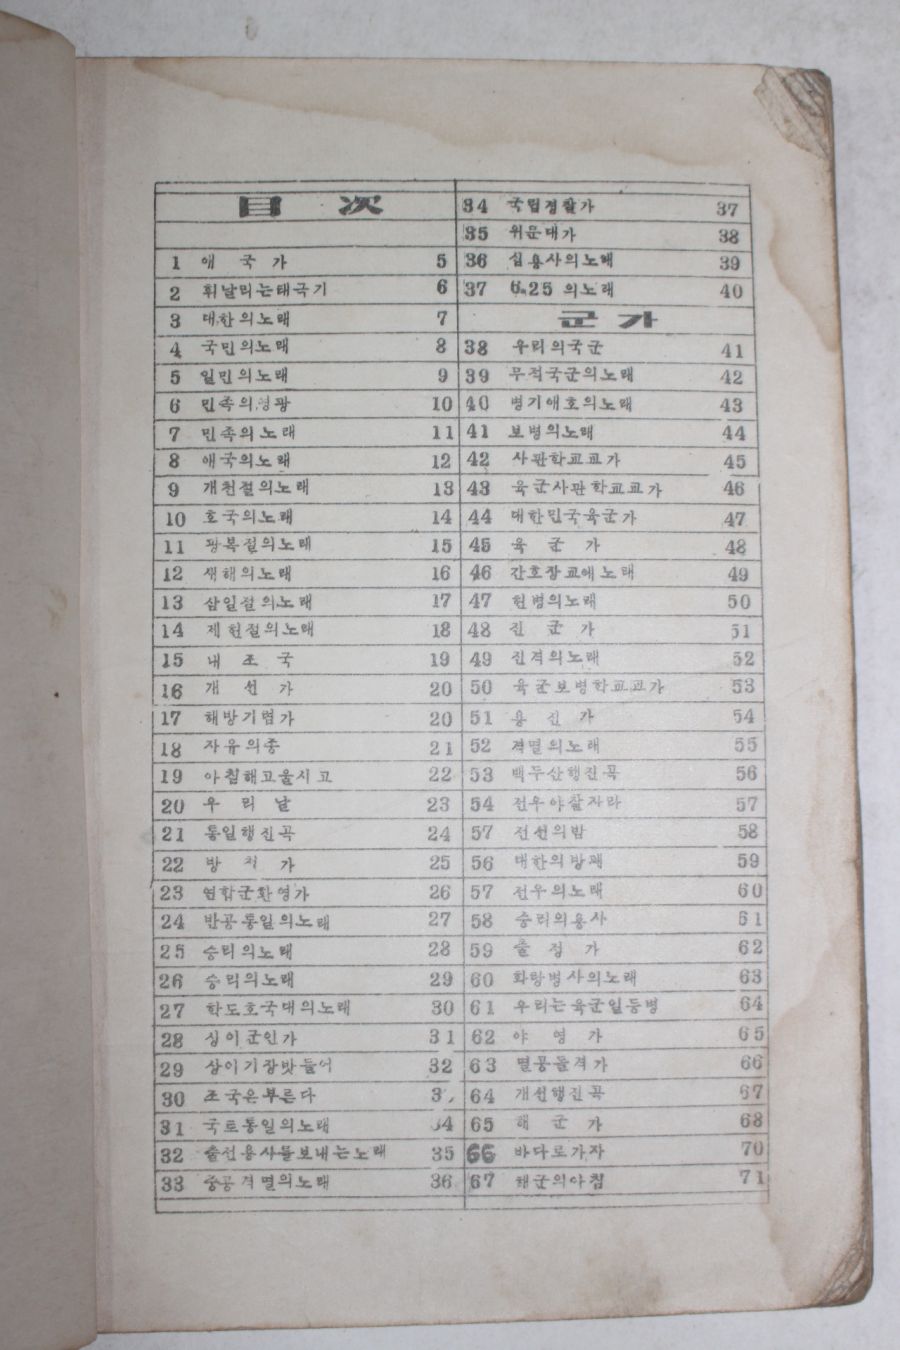 目 次
1 애 국 가 5
2 휘날리는태극기 6
3 대한의노래 7
4 국민의노래 8
5 일민의노래 9
6 민족의 광 10
7 민족의노래 11
8 애국의노래 12
9 개천절의노래 13
10 호국의노래 14
11 광복절의노래 15
12 새해의노래 16
13 삼일절의노래 17
14 제헌절의노래 18
15 내 조 국 19
16 개 선 가 20
17 해방기렴가 20
18 자유의종 21
19 아침해고울시고 22
20 우 리 날 23
21 통일행진곡 24
22 방 가 25
23 연합군환영가 26
24 반공통일의노래 27
25 승리의노래 28
26 승리의노래 29
27 학도호국대의노래 30
28 상이군인가 31
29 상이기장맛들어 32
30 조국은부른다
31 국토통일의노래
32 출전용사들보내는노래 35
33 중공격멸의노래 36
34 국립경찰가 37
35 위문대가 38
36 십용사의노래 39
37 6.25의노래 40
군가
38 우리의국군 41
39 무적국군의노래 42
40 병기애호의노래 43
41 보병의노래 44
42 사관학교교가 45
43 육군사관학교교가 46
44 대한민국육군가 47
45 육 군 가 48
46 간호장교에노래 49
47 헌병의노래 50
48 진 군 가 51
49 진격의노래 52
50 육군보병학교교가 53
51 용 진 가 54
52 격멸의노래 55
53 백두산행진곡 56
54 전우야잘자라 57
57 전선의밤 58
56 대한의방패 59
57 전우의노래 60
58 승리의용사 61
59 출 정 가 62
60 화랑병사의노래 63
61 우리는육군일등병 64
62 야 영 가 65
63 멸공돌격가 66
64 개선행진곡 67
65 해 군 가 68
66 바다로가자 70
67 해군의아침 71